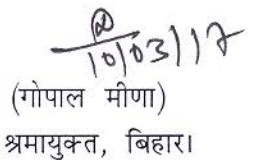 10/03/17
(गोपाल मीणा)
श्रमायुक्त, बिहार।